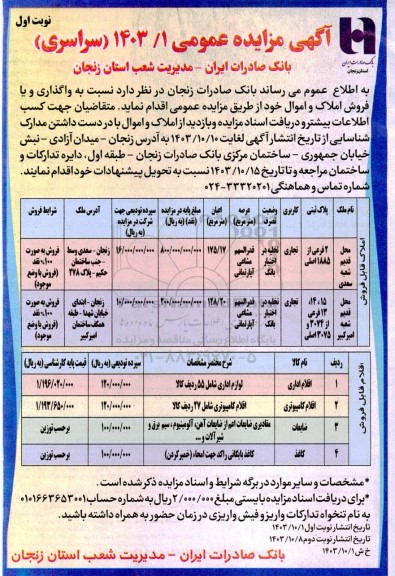 نوبت اول
آگهی مزایده عمومی ۱/ ۱۴۰۳ (سراسری)
بانک صادرات ایران - مدیریت شعب استان زنجان
بانک صادرات ایران
استان زنجان
به اطلاع عموم می رساند بانک صادرات زنجان در نظر دارد نسبت به واگذاری و یا
فروش املاک و اموال خود از طریق مزایده عمومی اقدام نماید. متقاضیان جهت کسب
اطلاعات بیشتر و دریافت اسناد مزایده و بازدید از املاک و اموال با در دست داشتن مدارک
شناسایی از تاریخ انتشار آگهی لغایت ۱۴۰۳/۱۰/۱۰ به آدرس زنجان - میدان آزادی - نبش
خیابان جمهوری - ساختمان مرکزی بانک صادرات زنجان - طبقه اول، دایره تدارکات و
ساختمان مراجعه و تا تاریخ ۱۴۰۳/۱۰/۱۵ نسبت به تحویل پیشنهادات خود اقدام نمایند.
شماره تماس و هماهنگی ۳۳۳۲۰۲۰۱-۰۲۴
املاک قابل فروش
نام ملک | پلاک ثبتی | کاربری | وضعیت تصرف | عرصه (متر مربع) | اعیان (متر مربع) | مبلغ پایه در مزایده (نقد) (به ریال) | سپرده تودیعی جهت شرکت در مزایده (به ریال) | آدرس ملک | شرایط فروش
محل قدیم شعبه سعدی | ۲ فرعی از ۱۸۸۵ اصلی | تجاری | تخلیه در اختیار بانک | قدرالسهم مشاعی آپارتمانی | ۱۷۵/۱۷ | ۸۰۰/۰۰۰/۰۰۰/۰۰۰ | ۱۶/۰۰۰/۰۰۰/۰۰۰ | زنجان - سعدی وسط - جنب ساختمان حکیم - پلاک ۳۷۸ | فروش به صورت ۱۰۰% نقد (فروش با وضع موجود)
محل قدیم شعبه امیرکبیر | ۱۴، ۱۵، ۱۳ فرعی از ۳۰۷۴ و ۳۰۷۵ اصلی | تجاری | تخلیه در اختیار بانک | قدرالسهم مشاعی آپارتمانی | ۱۳۸/۲۰ | ۲۰۰/۰۰۰/۰۰۰/۰۰۰ | ۱۰/۰۰۰/۰۰۰/۰۰۰ | زنجان - ابتدای خیابان شهدا - طبقه همکف ساختمان امیرکبیر | فروش به صورت ۱۰۰% نقد (فروش با وضع موجود)
اقلام قابل فروش
ردیف | نام کالا | شرح مختصر مشخصات | سپرده تودیعی (به ریال) | قیمت پایه کارشناسی (به ریال)
۱ | اقلام اداری | لوازم اداری شامل ۵۵ ردیف کالا | ۱۲۰/۰۰۰/۰۰۰ | ۱/۱۹۶/۰۲۰/۰۰۰
۲ | اقلام کامپیوتری | اقلام کامپیوتری شامل ۲۷ ردیف کالا | ۱۲۰/۰۰۰/۰۰۰ | ۱/۱۹۳/۶۵۰/۰۰۰
۳ | ضایعات | مقادیری ضایعات اعم از ضایعات آهن، آلومینیوم، سیم برق و شیرآلات و ... | ۱۰۰/۰۰۰/۰۰۰ | برحسب توزین
۴ | کاغذ | کاغذ بایگانی راکد جهت امحاء (خمیر کردن) | ۱۰۰/۰۰۰/۰۰۰ | برحسب توزین
*مشخصات و سایر موارد در برگه شرایط و اسناد مزایده ذکر شده است.
*برای دریافت اسناد مزایده بایستی مبلغ ۲/۰۰۰/۰۰۰ ریال به شماره حساب ۰۱۰۱۶۶۳۶۵۳۰۰۱
به نام تنخواه تدارکات واریز و فیش واریزی در زمان حضور به همراه داشته باشید.
تاریخ انتشار نوبت اول ۱۴۰۳/۱۰/۱
تاریخ انتشار نوبت دوم ۱۴۰۳/۱۰/۸
خ ش ۱۴۰۳/۱۰/۱
بانک صادرات ایران - مدیریت شعب استان زنجان